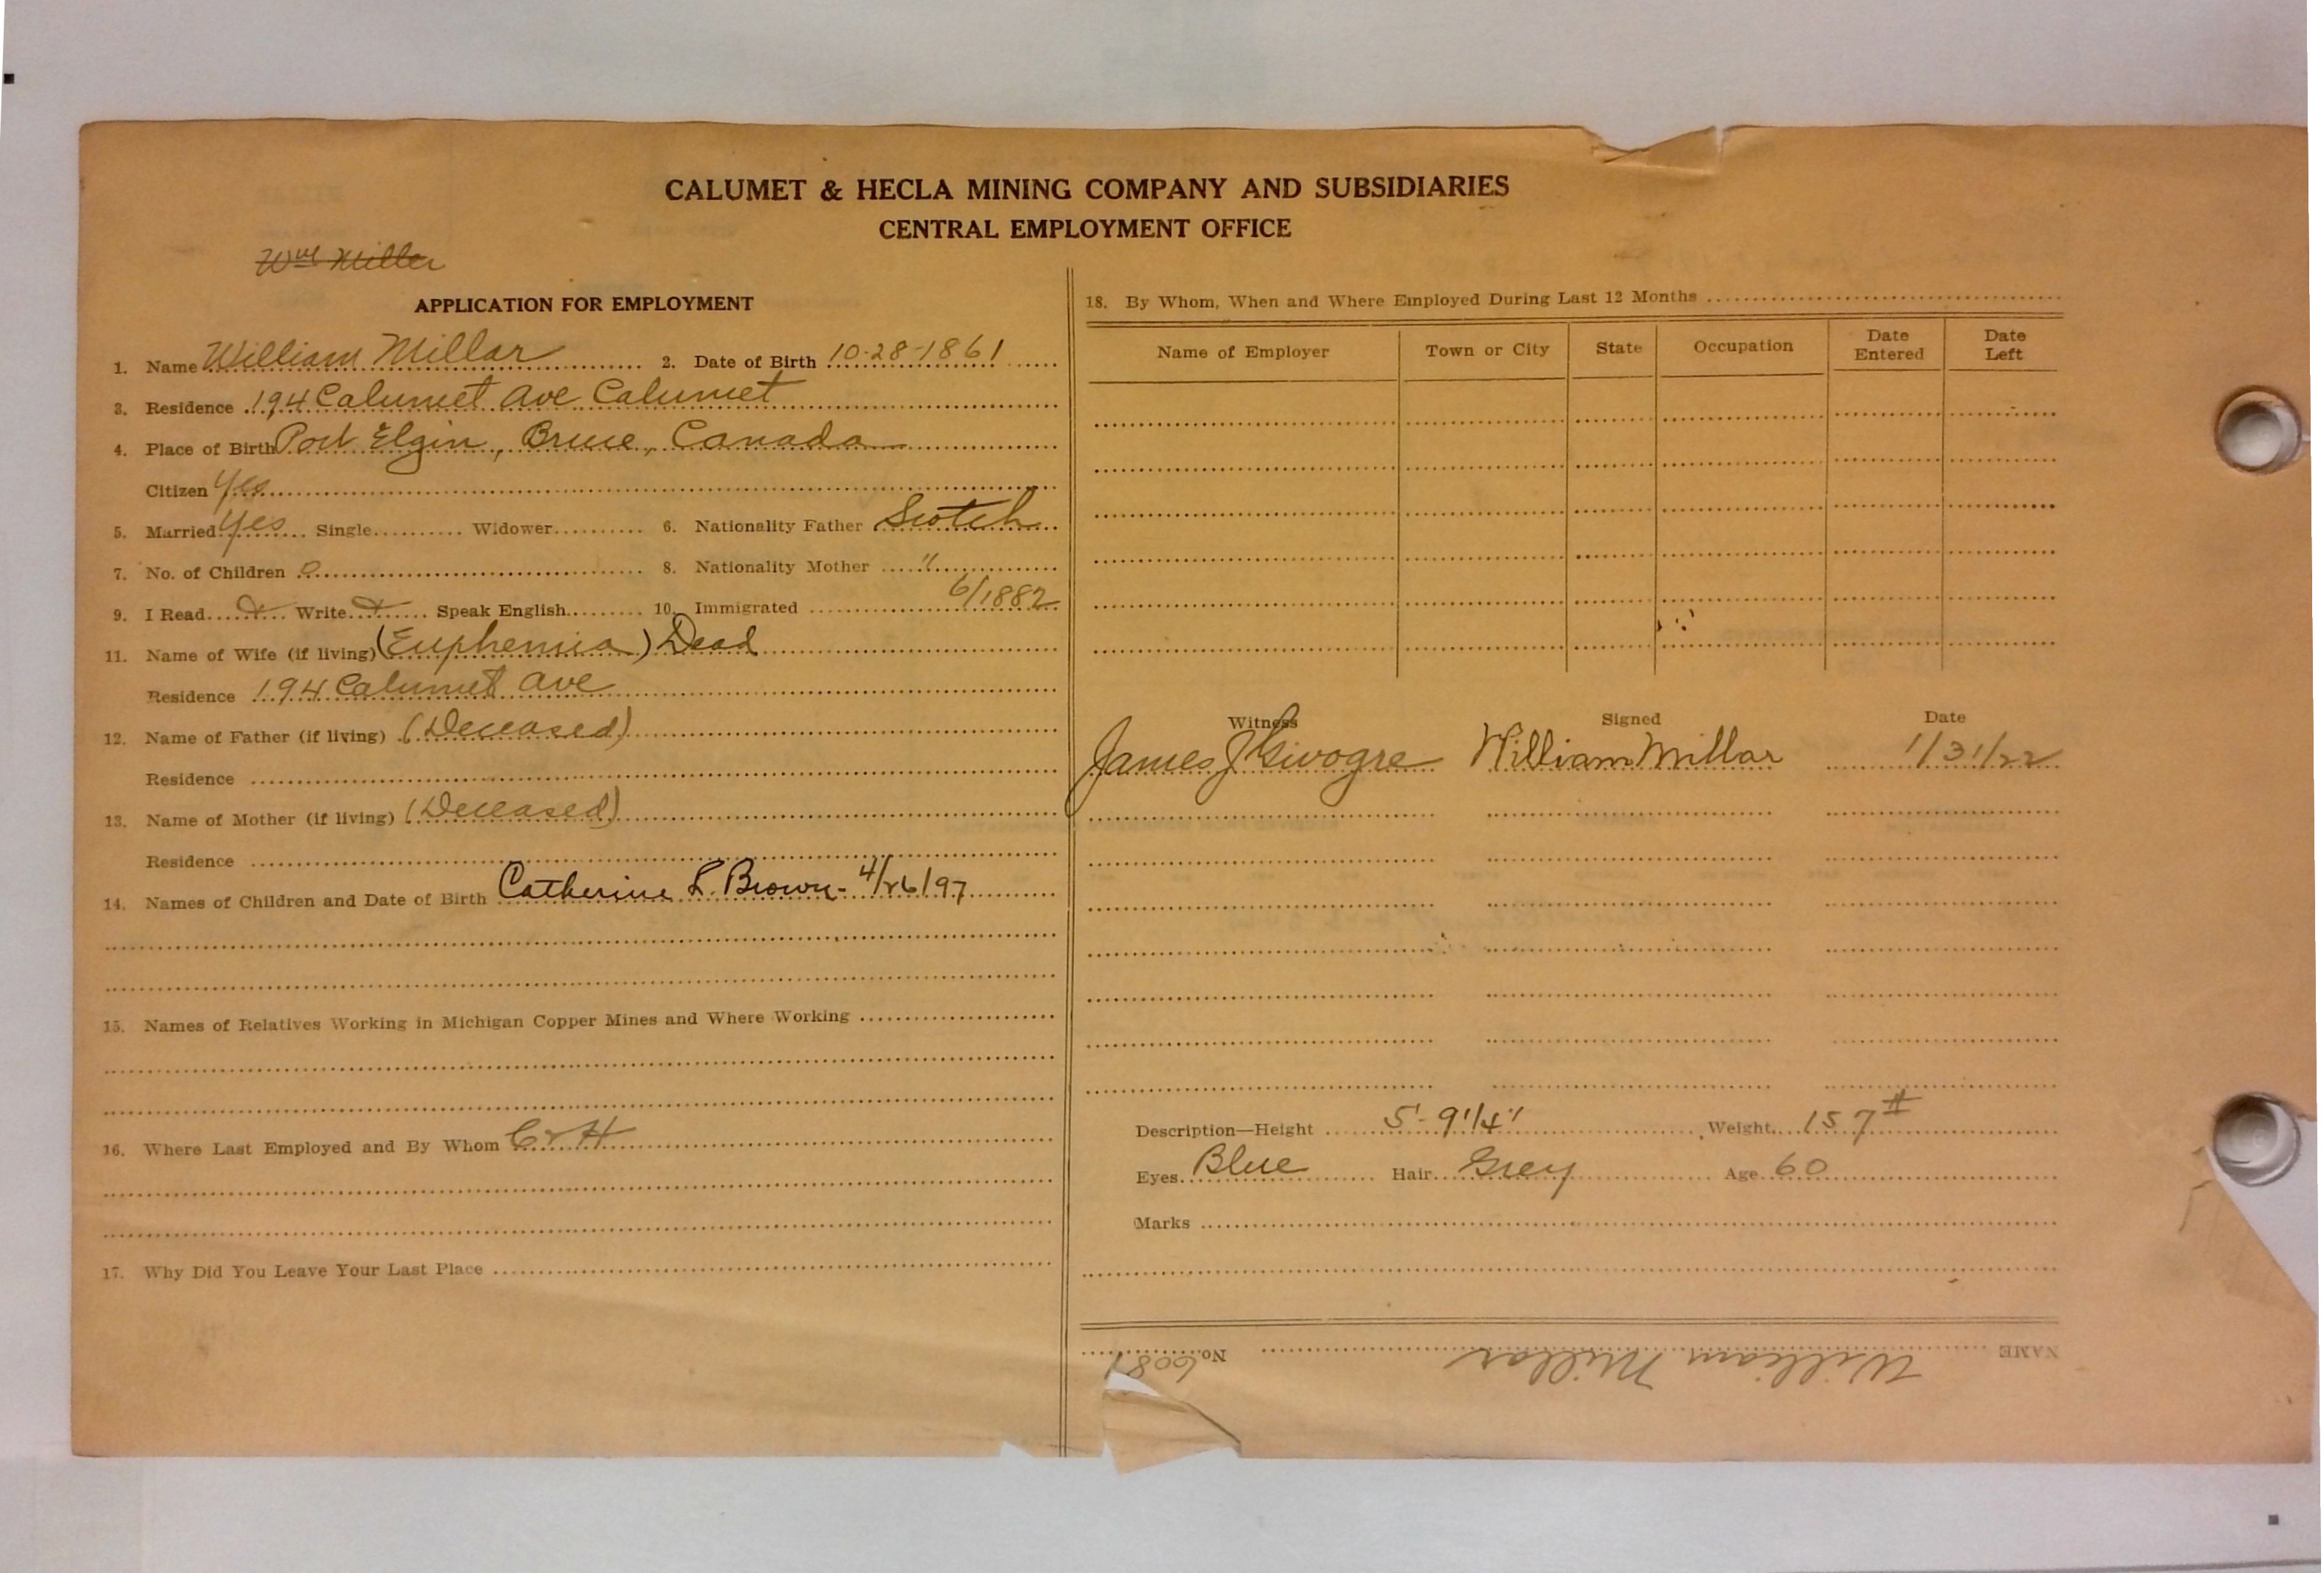 CALUMET & HECLA MINING COMPANY AND SUBSIDIARIES
CENTRAL EMPLOYMENT OFFICE
Wm Miller
APPLICATION FOR EMPLOYMENT
1. Name William Millar 2. Date of Birth 10-28-1861
3. Residence 194 Calumet Ave Calumet
4. Place of Birth Port Elgin, Bruce, Canada
Citizen Yes
5. Married Yes Single Widower 6. Nationality Father Scotch
7. No. of Children 0 8. Nationality Mother "
9. I Read Write Speak English 10. Immigrated 6/1882
11. Name of Wife (if living) (Euphemia) Dead
Residence 194 Calumet Ave
12. Name of Father (if living) (Deceased)
Residence
13. Name of Mother (if living) (Deceased)
Residence
14. Names of Children and Date of Birth Catherine L. Brown - 4/26/97
15. Names of Relatives Working in Michigan Copper Mines and Where Working
16. Where Last Employed and By Whom C & H
17. Why Did You Leave Your Last Place
18. By Whom, When and Where Employed During Last 12 Months
Name of Employer Town or City State Occupation Date Entered Date Left
Witness Signed Date
James J Givogre William Millar 1/31/22
Description—Height 5'-9 1/4" Weight 157#
Eyes Blue Hair Grey Age 60
Marks
NAME William Millar No. 6081